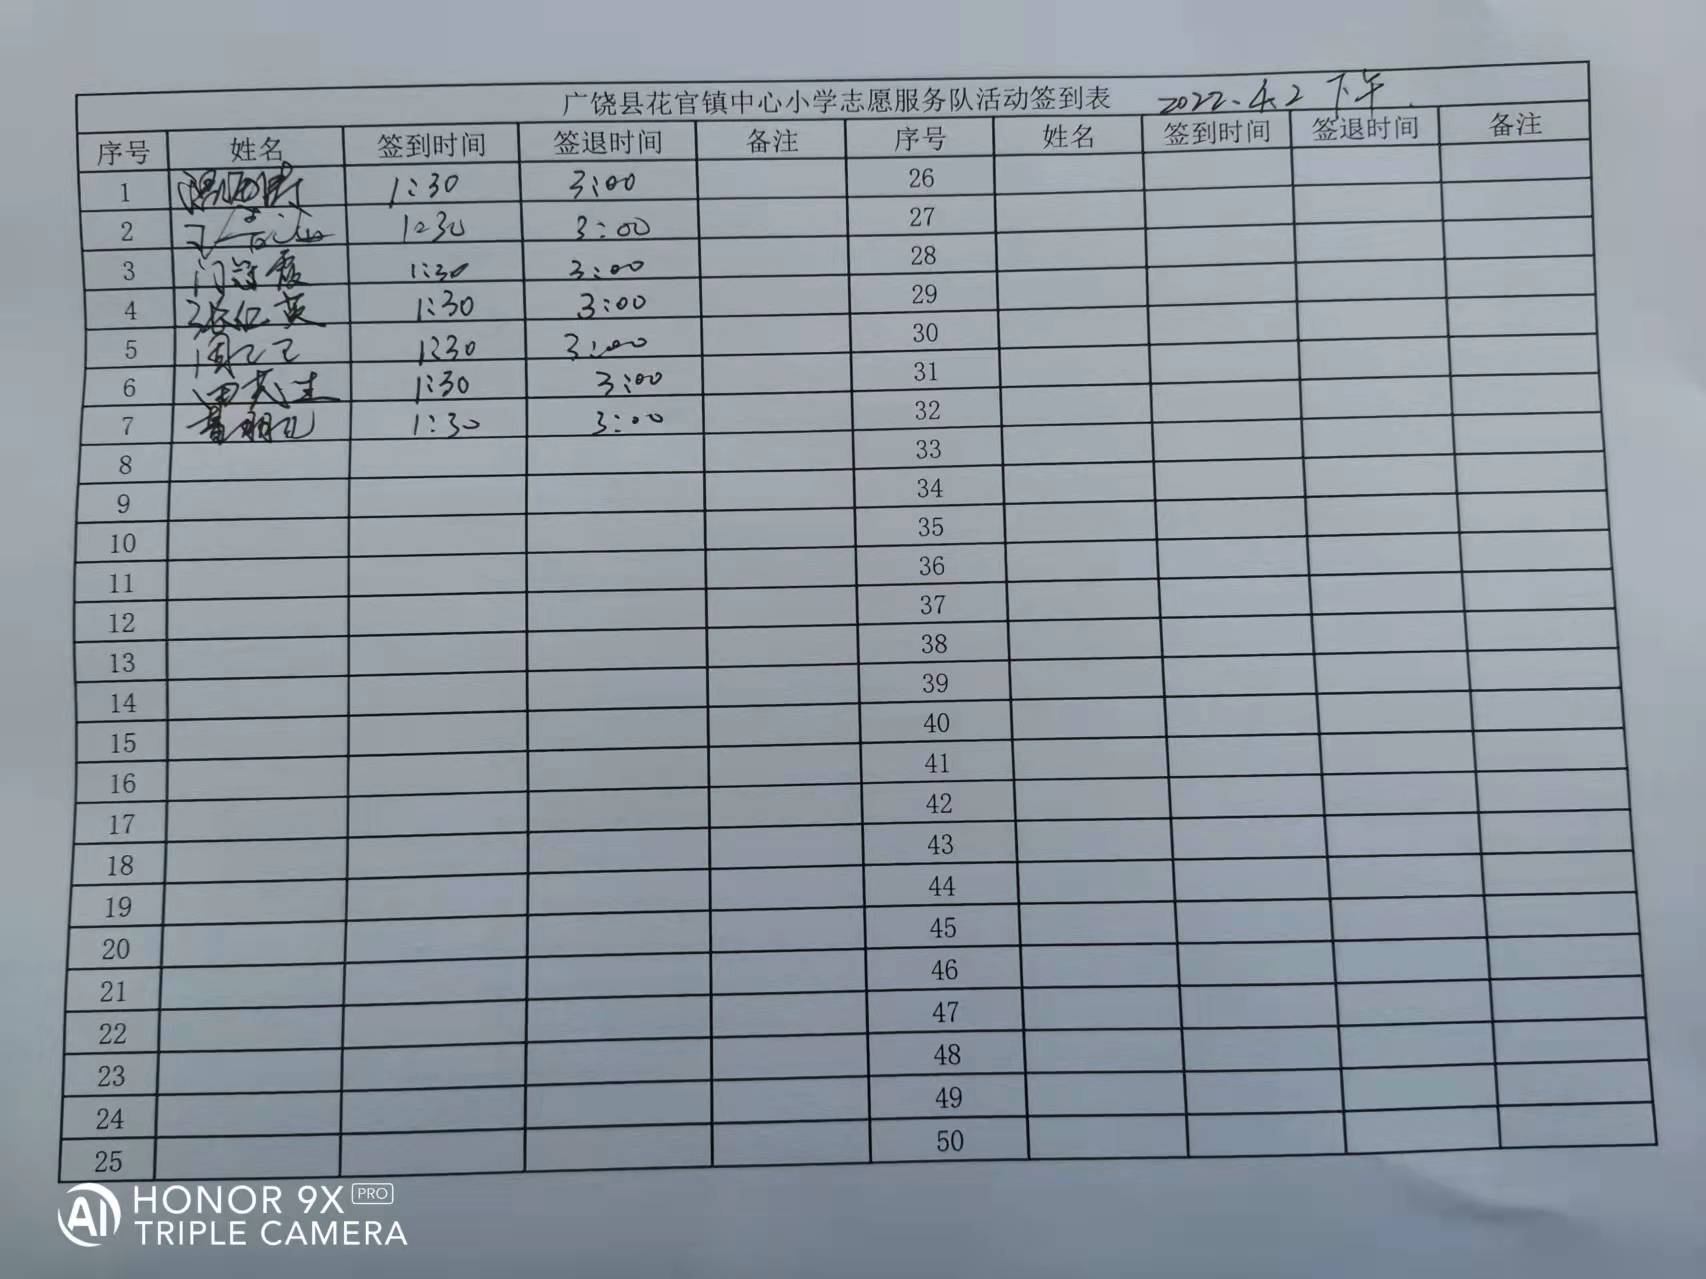 广饶县花官镇中心小学志愿服务队活动签到表 2022.4.2 下午
序号 姓名 签到时间 签退时间 备注 序号 姓名 签到时间 签退时间 备注
1 1:30 3:00 26
2 1:30 3:00 27
3 1:30 3:00 28
4 张红英 1:30 3:00 29
5 1:30 3:00 30
6 1:30 3:00 31
7 1:30 3:00 32
8 33
9 34
10 35
11 36
12 37
13 38
14 39
15 40
16 41
17 42
18 43
19 44
20 45
21 46
22 47
23 48
24 49
25 50
AI HONOR 9X PRO
TRIPLE CAMERA